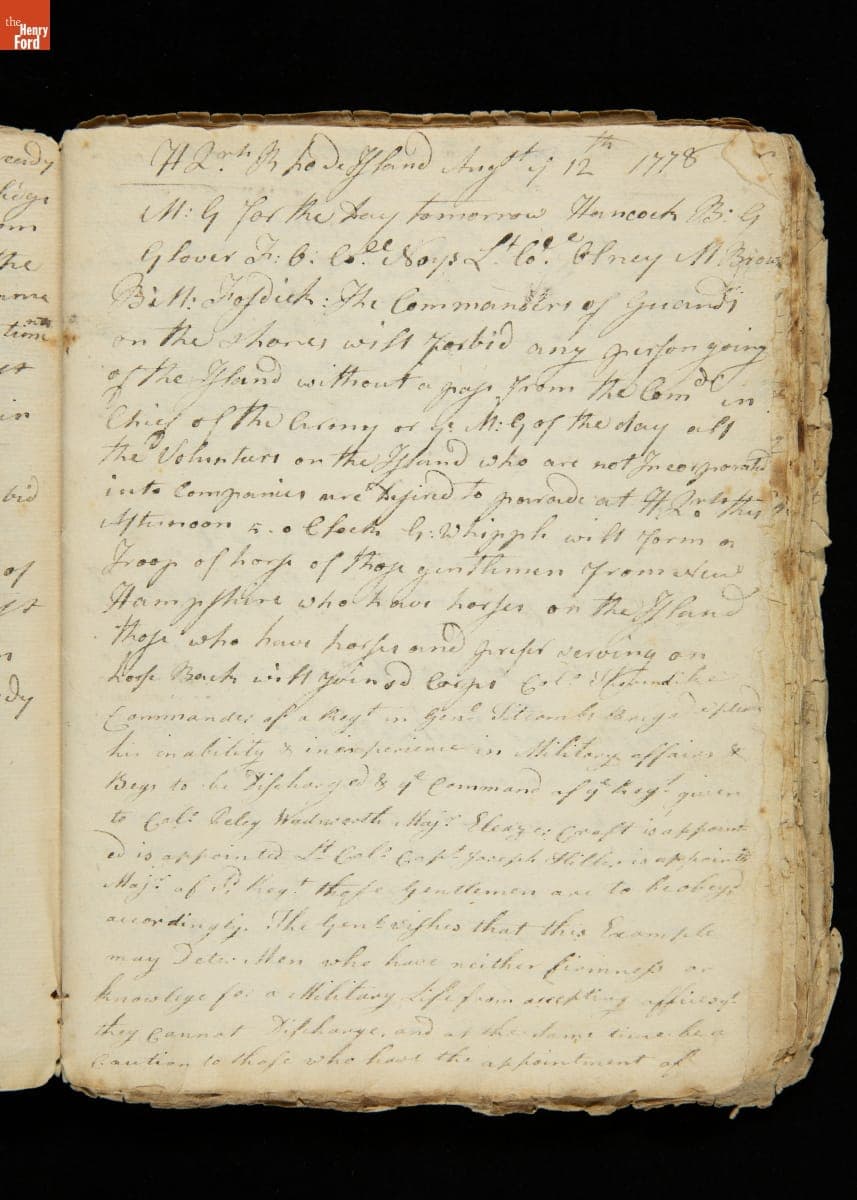 the
Henry
Ford
eady
the
in
bid
of
H Qrs. Rhode Island Augst. ye 12th 1778
M: G for the Day tomorrow Hancock B: G
Glover F: O: Cole. Noys Lt. Cole. Olney M. Brow
B: M: Fosdick: The Commanders of Guards
on the Shores will forbid any person going
of the Island without a pass from the Comdr. in
Chief of the Army or ye M: G of the day all
the Volunteers on the Island who are not Incorporated
into Companies are desired to parade at H. Qrs this
Afternoon 5. o Clock G: Whipple will form a
Troop of horse of those gentlemen from New
Hampshire who have horses on the Island
those who have horses and prefer serving on
horse Back will join sd Corps Coll. Thorndike
Commander of a Regt. in Genl. Titcombs Brigd. plead
his inability & inexperience in Military affairs &
Begs to be Discharged & ye Command of ye Regt. given
to Coll. Peleg Wadsworth Majr. Eleazer Craft is appoint
ed is appointed Lt. Coll. Capt. Joseph Hiller is appointed
Majr. of sd. Regt. those Gentlemen are to be obeyd
accordingly. The Genl. wishes that this Example
may Deter Men who have neither firmness or
knowlege for a Military Life from accepting offices yt.
they cannot Discharge. and at the same time be a
Caution to those who have the appointment of